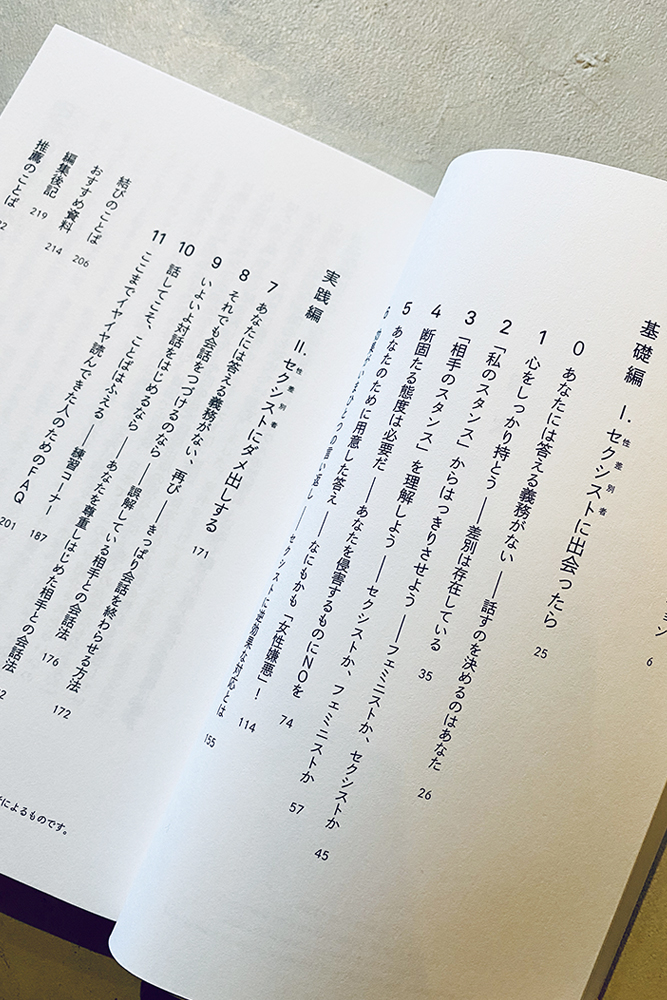 ョン 6
基礎編 I. セクシストに出会ったら 25
性差別者
0 あなたには答える義務がない ――話すのを決めるのはあなた 26
1 心をしっかり持とう ――差別は存在している 35
2 「私のスタンス」からはっきりさせよう ――フェミニストか、セクシストか 45
3 「相手のスタンス」を理解しよう ――セクシストか、フェミニストか 57
4 断固たる態度は必要だ ――あなたを侵害するものにNOを 74
5 あなたのために用意した答え ――なにもかも「女性嫌悪」! 114
いまひとつの言い返し ――セクシストに逆効果な対応とは 155
実践編 II. セクシストにダメ出しする 171
性差別者
7 あなたには答える義務がない、再び ――きっぱり会話を終わらせる方法 172
8 それでも会話をつづけるのなら ――誤解している相手との会話法 176
9 いよいよ対話をはじめるなら ――あなたを尊重しはじめた相手との会話法
10 話してこそ、ことばはふえる ――練習コーナー 187
11 ここまでイヤイヤ読んできた人のためのFAQ 201
結びのことば 206
おすすめ資料 214
編集後記 219
推薦のことば
によるものです。